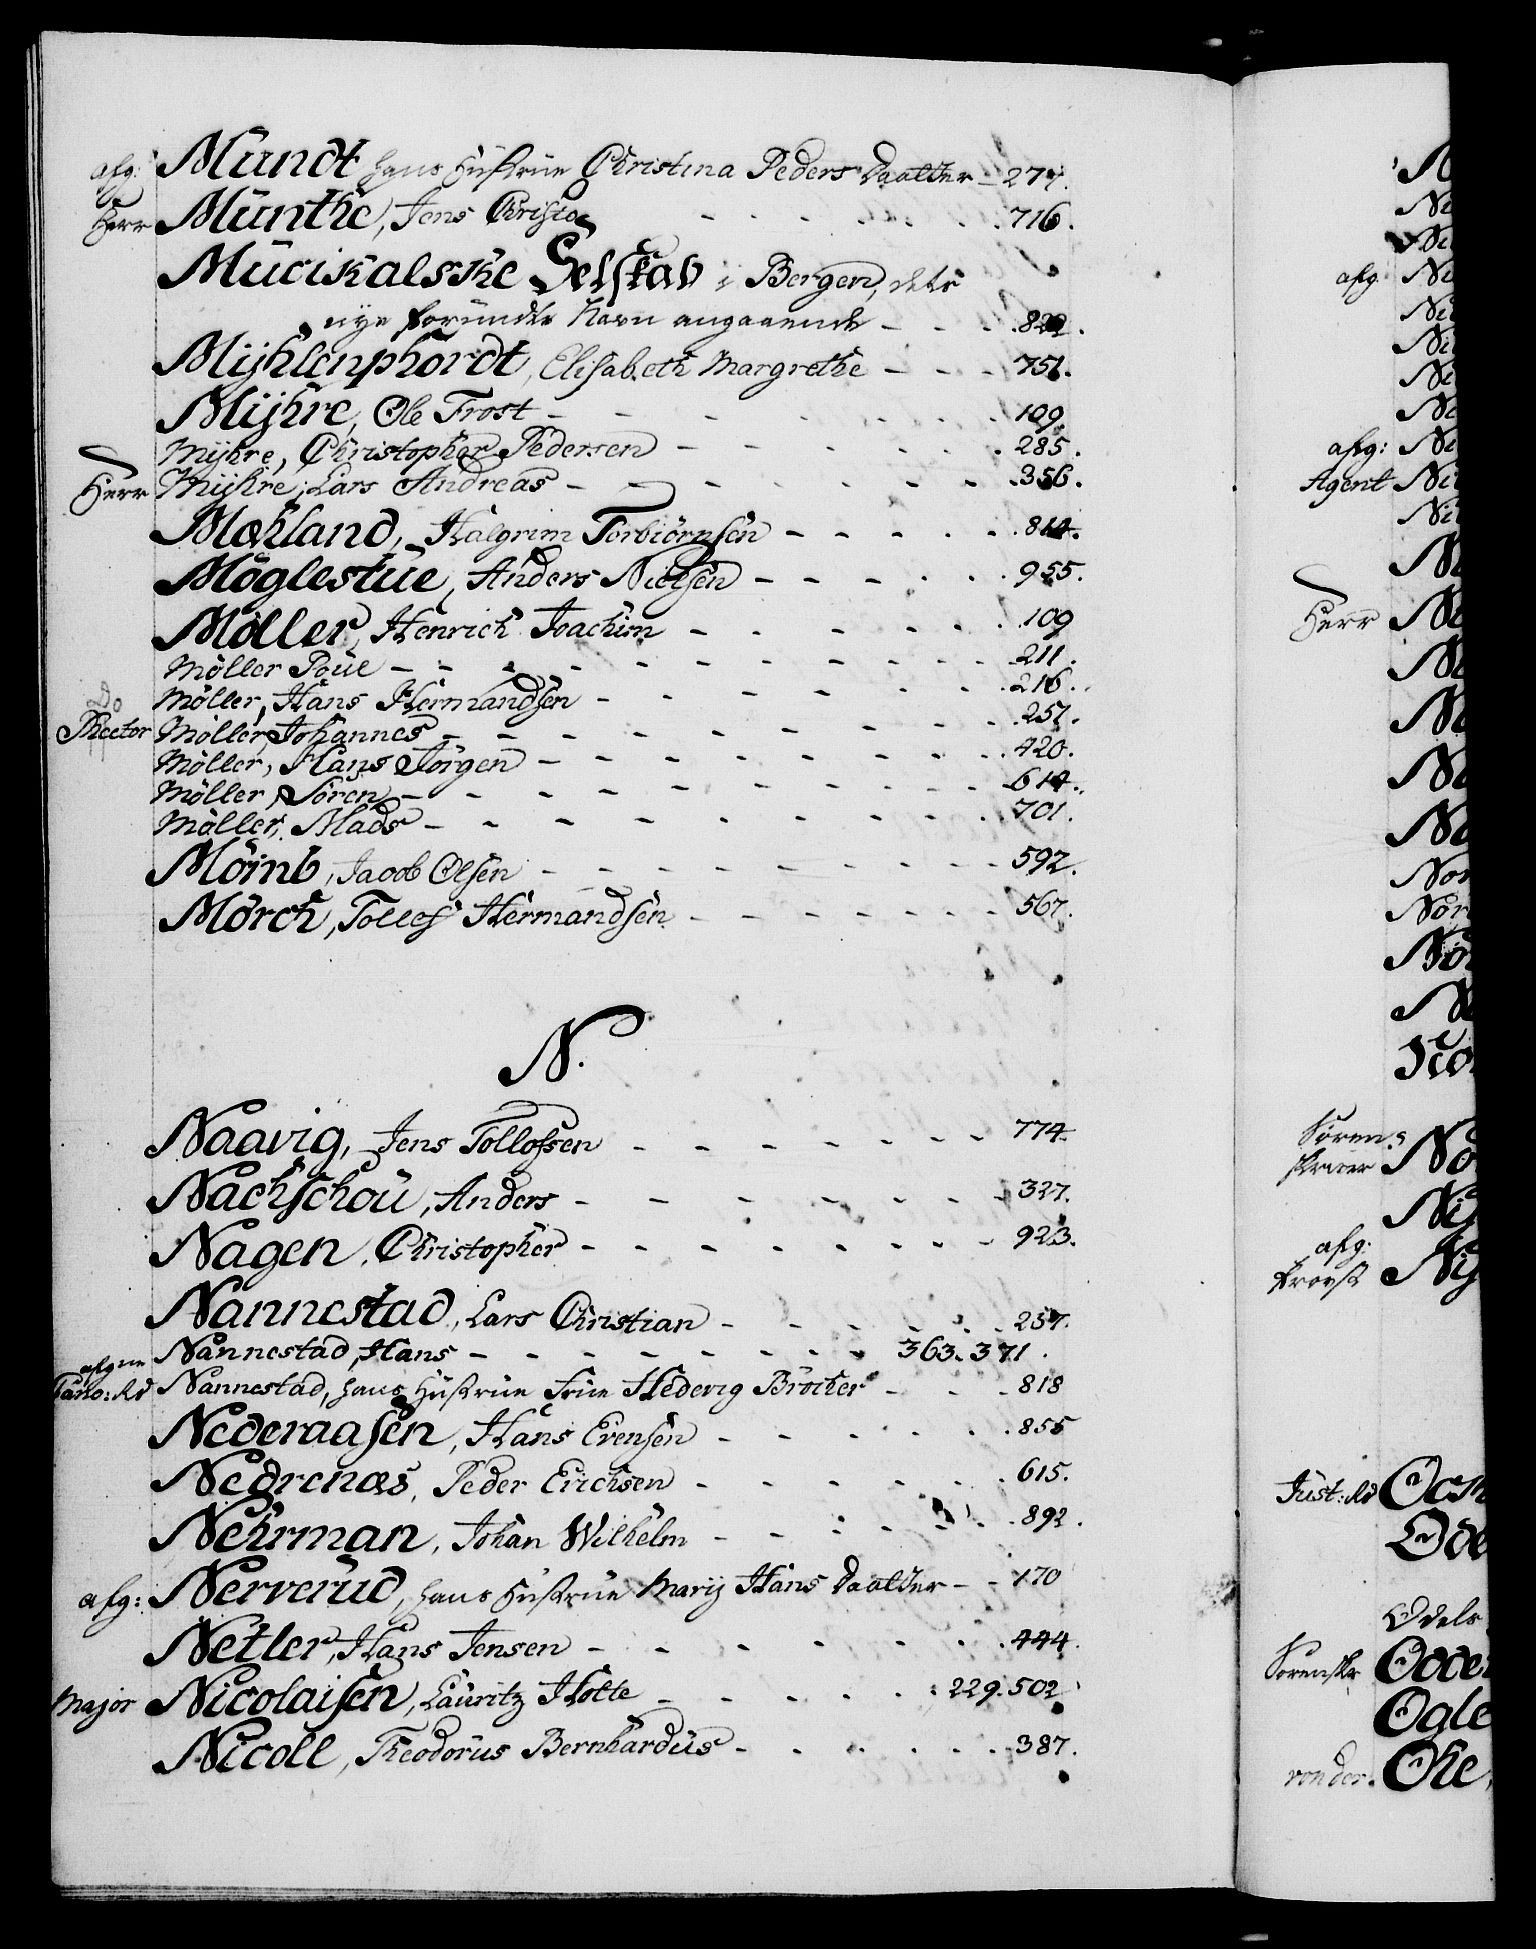 afg: Mundt hans Hustrue Christina Peders Daatter - 277.
Herr Munthe, Jens Christo - - - - 716.
Mucikalske Selskab i Bergen, dets
nye Navn angaaende - - - 822.
Myhlenphordt, Elisabeth Margrethe - - - 751.
Myhre, Ole Frost - - - - 109
Myhre, Christopher Pedersen - - - - 285.
Herr Myhre, Lars Andreas - - - - 356.
Mæhland, Halgrim Torbiørnsen - - - - 814.
Møglestue, Anders Nielsen - - - - 955.
Møller, Henrich Joachim - - - - 109
Møller Poul - - - - 211.
Møller, Hans Hermandsen - - - - 216.
Do
Rector Møller, Johannes - - - - 257.
Møller, Hans Jørgen - - - - 420.
Møller, Søren - - - - 614.
Møller, Mads - - - - 701.
Møinb, Jacob Olsen - - - - 592.
Mørch, Tollef Hermandsen - - - - 567.
N.
Naavig, Jens Tollofsen - - - - 774.
Nachschou, Anders - - - - 327.
Nagen, Christopher - - - - 923.
Nannestad, Lars Christian - - - - 257.
Nannestad, Hans - - - - 363. 371.
afgne
Nannestad, hans Hustrue Frue Hedevig Bröcher - - - 818
Nederaasen, Hans Evensen - - - - 855
Nedrenæs, Peder Erichsen - - - - 615.
Nehrman, Johan Wilhelm - - - - 892.
afg: Nerverud, hans Hustrue Mary Hans Daatter - - 170
Netler, Hans Jensen - - - - 444.
Major Nicolaisen, Lauritz Holte - - - - 229. 502
Nicoll, Theodorus Bernhardus - - - - 387.
afg.
afg:
Agent
Herr
Nor
Nør
Søren=
skriver
afg.
Provst
Just: Rd
Ode
Odels
Sorenskr
Ogle
von der.